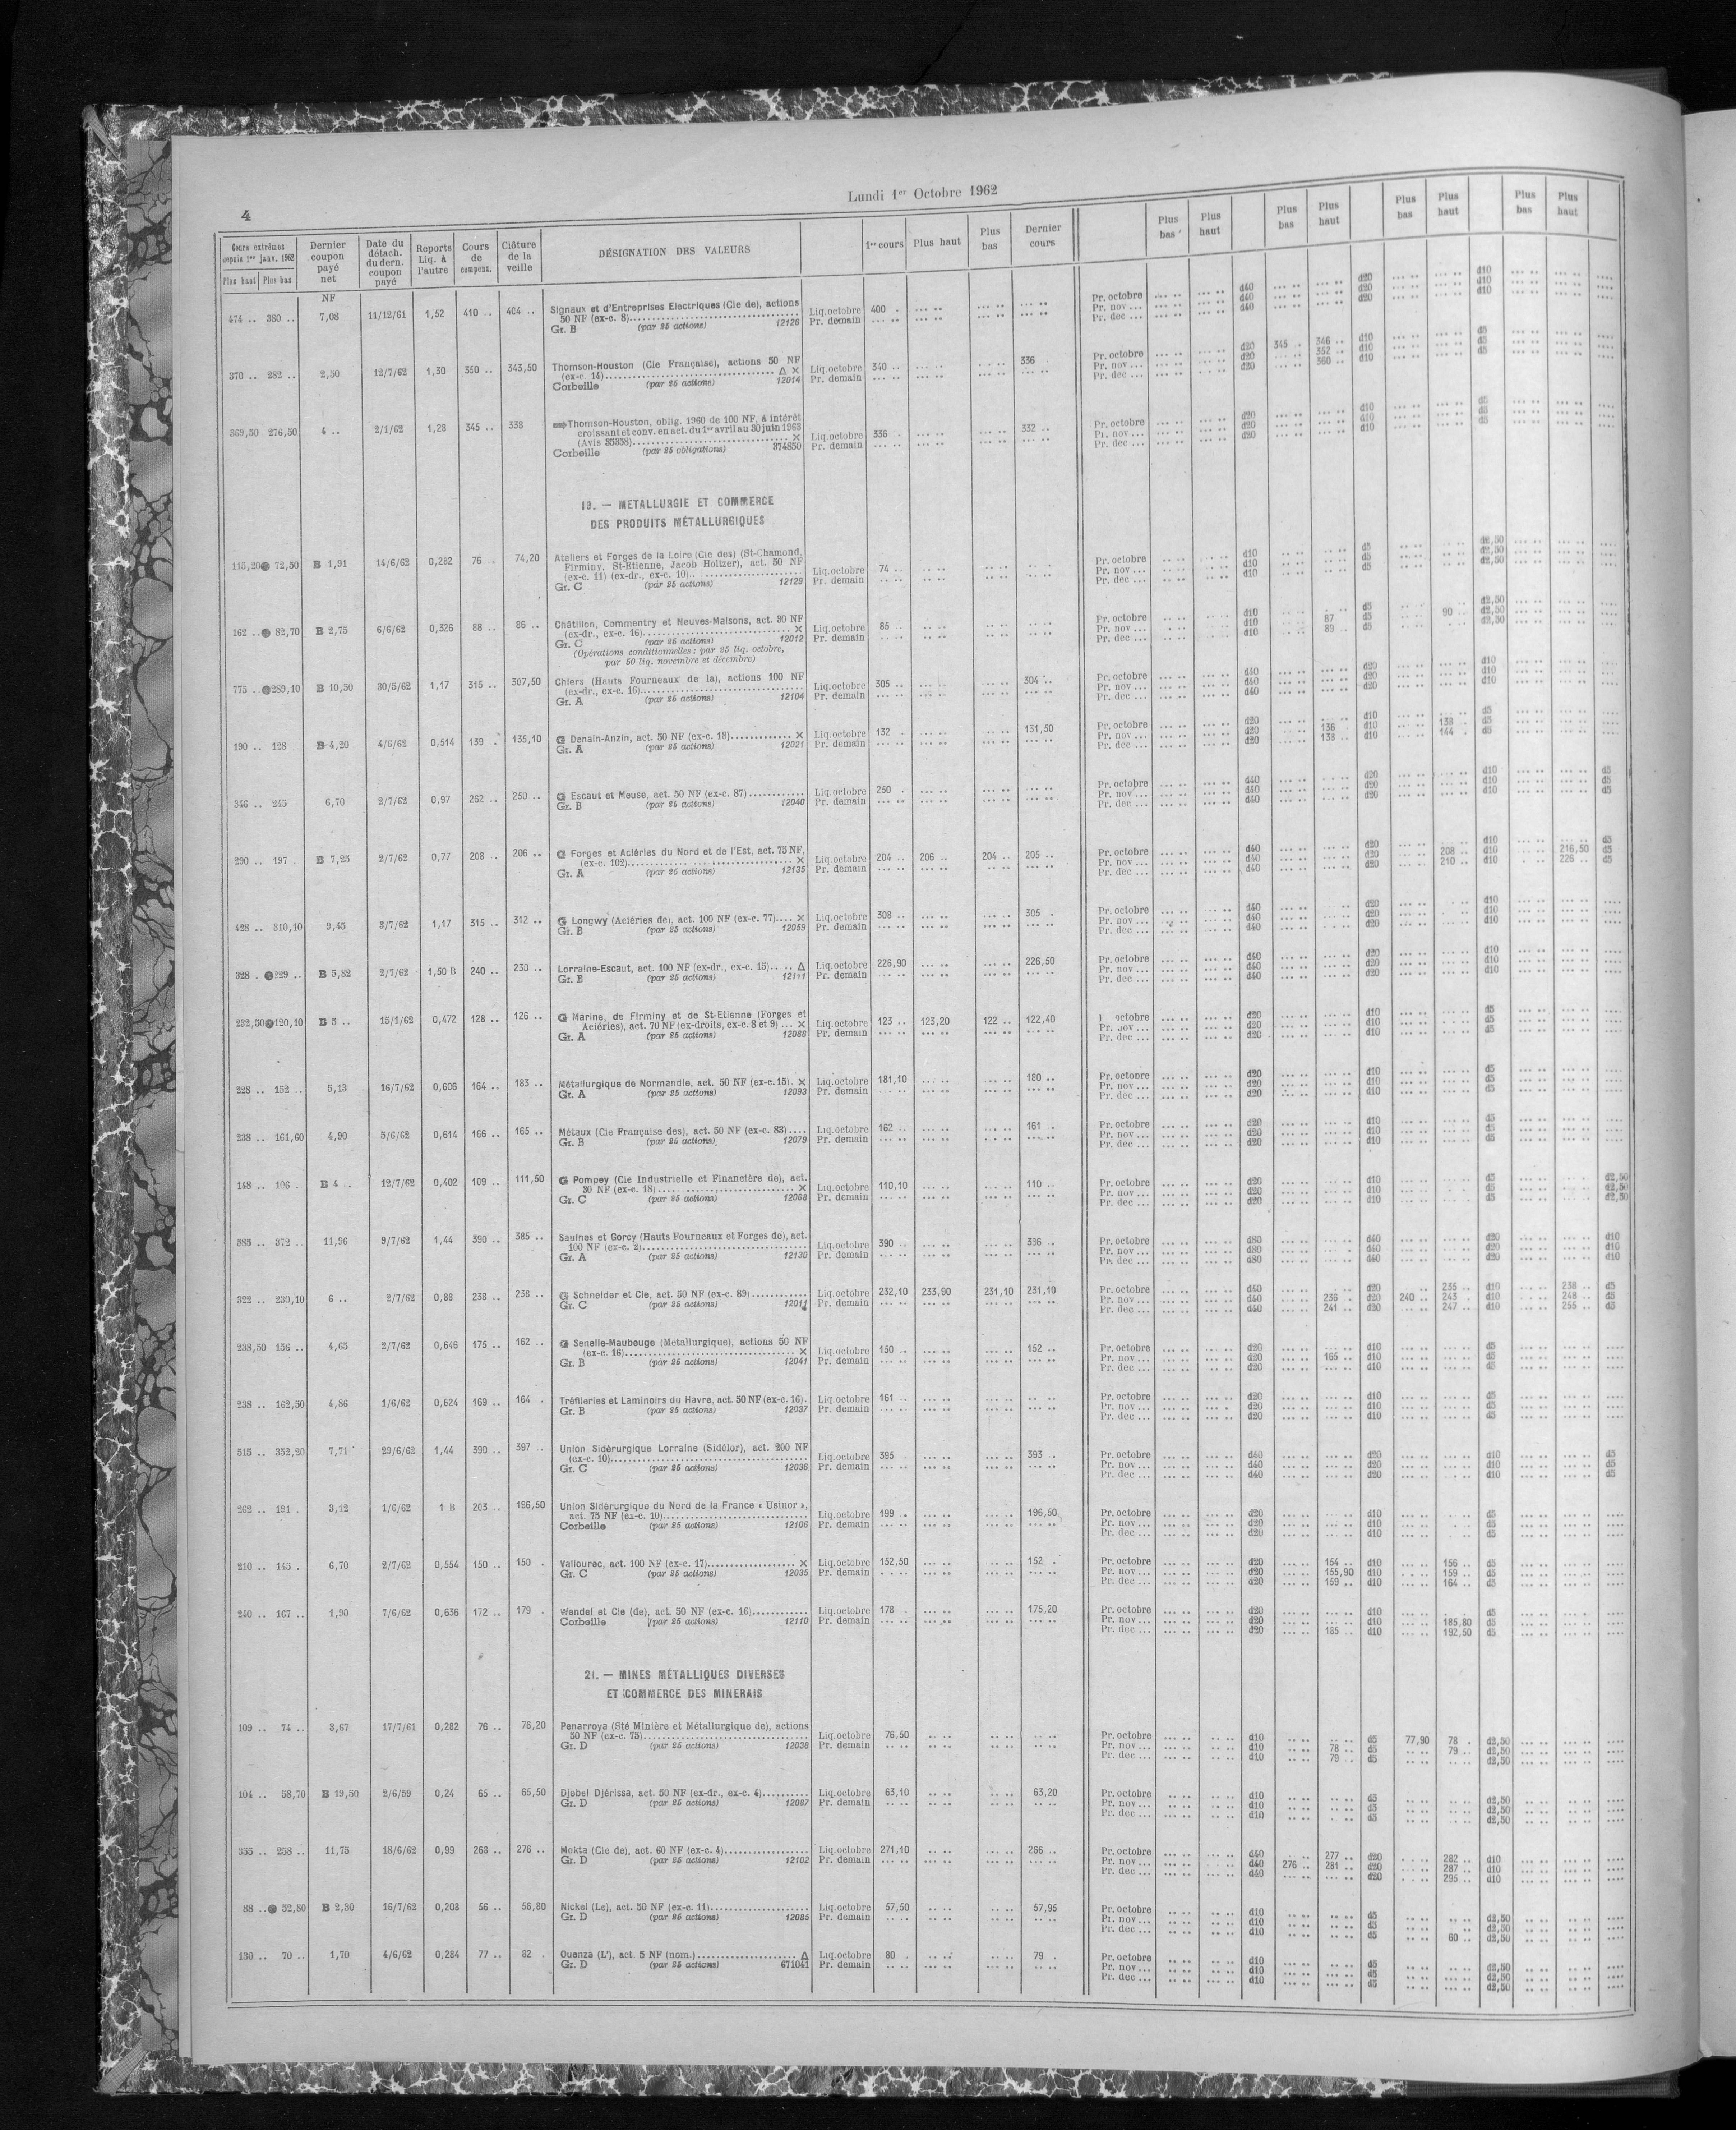 4
Lundi 1er Octobre 1962
Cours extrêmes depuis 1er janv. 1962 Plus haut Plus bas | Dernier coupon payé net | Date du détach. du dern. coupon payé | Reports Liq. à l'autre | Cours de compens. | Clôture de la veille | DÉSIGNATION DES VALEURS | 1er cours | Plus haut | Plus bas | Dernier cours | Plus bas | Plus haut | Plus bas | Plus haut | Plus bas | Plus haut | Plus bas | Plus haut
NF
474 .. 380 .. 7,08 11/12/61 1,52 410 .. 404 .. Signaux et d'Entreprises Electriques (Cie de), actions
50 NF (ex-c. 8) Liq.octobre 400 . Pr. octobre d40 d20 d10
Gr. B (par 25 actions) 12126 Pr. demain Pr. nov ... d40 d20 d10
Pr. dec ... d40 d20 d10
370 .. 282 .. 2,50 12/7/62 1,30 350 .. 343,50 Thomson-Houston (Cie Française), actions 50 NF
(ex-c. 14) Δ × Liq.octobre 340 .. 336 . Pr. octobre d20 345 . 346 .. d10 d5
Corbeille (par 25 actions) 12014 Pr. demain Pr. nov ... d20 352 .. d10 d5
Pr. dec ... d20 360 .. d10 d5
369,50 276,50 4 .. 2/1/62 1,28 345 .. 338 Thomson-Houston, oblig. 1960 de 100 NF, à intérêt
croissant et conv. en act. du 1er avril au 30 juin 1963
(Avis 35358) × Liq.octobre 336 . 332 .. Pr. octobre d20 d10 d5
Corbeille (par 25 obligations) 374850 Pr. demain Pr. nov ... d20 d10 d5
Pr. dec ... d20 d10 d5
19. — METALLURGIE ET COMMERCE
DES PRODUITS MÉTALLURGIQUES
115,20 72,50 B 1,91 14/6/62 0,282 76 .. 74,20 Ateliers et Forges de la Loire (Cie des) (St-Chamond,
Firminy, St-Etienne, Jacob Holtzer), act. 50 NF
(ex-c. 11) (ex-dr., ex-c. 10) Liq.octobre 74 .. Pr. octobre d10 d5 d2,50
Gr. C (par 25 actions) 12129 Pr. demain Pr. nov ... d10 d5 d2,50
Pr. dec ... d10 d5 d2,50
162 .. 82,70 B 2,75 6/6/62 0,326 88 .. 86 .. Châtillon, Commentry et Neuves-Maisons, act. 30 NF
(ex-dr., ex-c. 16) × Liq.octobre 85 .. Pr. octobre d10 d5 d2,50
Gr. C (par 25 actions) 12012 Pr. demain Pr. nov ... d10 87 d5 90 .. d2,50
(Opérations conditionnelles : par 25 liq. octobre, Pr. dec ... d10 89 .. d5 d2,50
par 50 liq. novembre et décembre)
775 .. 289,10 B 10,50 30/5/62 1,17 315 .. 307,50 Chiers (Hauts Fourneaux de la), actions 100 NF
(ex-dr., ex-c. 16) Liq.octobre 305 .. 304 .. Pr. octobre d40 d20 d10
Gr. A (par 25 actions) 12104 Pr. demain Pr. nov ... d40 d20 d10
Pr. dec ... d40 d20 d10
190 .. 128 B 4,20 4/6/62 0,514 139 . 135,10 G Denain-Anzin, act. 50 NF (ex-c. 18) × Liq.octobre 132 . 131,50 Pr. octobre d20 d10 d5
Gr. A (par 25 actions) 12021 Pr. demain Pr. nov ... d20 136 d10 138 . d5
Pr. dec ... d20 138 .. d10 144 . d5
346 .. 245 6,70 2/7/62 0,97 262 .. 250 .. G Escaut et Meuse, act. 50 NF (ex-c. 87) Liq.octobre 250 . Pr. octobre d40 d20 d10 d5
Gr. B (par 25 actions) 12040 Pr. demain Pr. nov ... d40 d20 d10 d5
Pr. dec ... d40 d20 d10 d5
290 .. 197 . B 7,25 2/7/62 0,77 208 .. 206 .. G Forges et Aciéries du Nord et de l'Est, act. 75 NF,
(ex-c. 102) × Liq.octobre 204 .. 206 .. 204 .. 205 .. Pr. octobre d40 d20 d10 d5
Gr. A (par 25 actions) 12135 Pr. demain Pr. nov ... d40 d20 208 .. d10 216,50 d5
Pr. dec ... d40 d20 210 .. d10 226 .. d5
428 .. 310,10 9,45 3/7/62 1,17 315 .. 312 .. G Longwy (Aciéries de), act. 100 NF (ex-c. 77) × Liq.octobre 308 .. 305 . Pr. octobre d40 d20 d10
Gr. B (par 25 actions) 12059 Pr. demain Pr. nov ... d40 d20 d10
Pr. dec ... d40 d20 d10
328 . 229 .. B 5,82 2/7/62 1,50 B 240 .. 230 .. Lorraine-Escaut, act. 100 NF (ex-dr., ex-c. 15) Δ Liq.octobre 226,90 226,50 Pr. octobre d40 d20 d10
Gr. B (par 25 actions) 12111 Pr. demain Pr. nov ... d40 d20 d10
Pr. dec ... d40 d20 d10
232,50 120,10 B 5 .. 15/1/62 0,472 128 .. 126 .. G Marine, de Firminy et de St-Etienne (Forges et
Aciéries), act. 70 NF (ex-droits, ex-c. 8 et 9) ... × Liq.octobre 123 .. 123,20 122 .. 122,40 octobre d20 d10 d5
Gr. A (par 25 actions) 12088 Pr. demain Pr. nov ... d20 d10 d5
Pr. dec ... d20 d10 d5
228 .. 152 .. 5,13 16/7/62 0,606 164 .. 183 .. Métallurgique de Normandie, act. 50 NF (ex-c. 15). × Liq.octobre 181,10 180 .. Pr. octobre d20 d10 d5
Gr. A (par 25 actions) 12093 Pr. demain Pr. nov ... d20 d10 d5
Pr. dec ... d20 d10 d5
238 .. 161,60 4,90 5/6/62 0,614 166 .. 165 .. Métaux (Cie Française des), act. 50 NF (ex-c. 83) .... Liq.octobre 162 .. 161 .. Pr. octobre d20 d10 d5
Gr. B (par 25 actions) 12079 Pr. demain Pr. nov ... d20 d10 d5
Pr. dec ... d20 d10 d5
148 .. 106 . B 4 .. 12/7/62 0,402 109 .. 111,50 G Pompey (Cie Industrielle et Financière de), act.
30 NF (ex-c. 18) × Liq.octobre 110,10 110 .. Pr. octobre d20 d10 d5 d2,50
Gr. C (par 25 actions) 12068 Pr. demain Pr. nov ... d20 d10 d5 d2,50
Pr. dec ... d20 d10 d5 d2,50
585 .. 372 .. 11,96 9/7/62 1,44 390 .. 385 .. Saulnes et Gorcy (Hauts Fourneaux et Forges de), act.
100 NF (ex-c. 2) Liq.octobre 390 .. Pr. octobre d80 d40 d20 d10
Gr. A (par 25 actions) 12130 Pr. demain Pr. nov ... d80 d40 d20 d10
Pr. dec ... d80 d40 d20 d10
322 .. 230,10 6 .. 2/7/62 0,88 238 .. 238 .. G Schneider et Cie, act. 50 NF (ex-c. 89) Liq.octobre 232,10 233,90 231,10 231,10 Pr. octobre d40 d20 235 .. d10 238 .. d5
Gr. C (par 25 actions) 12011 Pr. demain Pr. nov ... d40 236 d20 240 .. 243 .. d10 248 .. d5
Pr. dec ... d40 241 .. d20 247 .. d10 255 .. d5
238,50 156 .. 4,65 2/7/62 0,646 175 .. 162 .. G Senelle-Maubeuge (Métallurgique), actions 50 NF
(ex-c. 16) × Liq.octobre 150 .. 152 .. Pr. octobre d20 d10 d5
Gr. B (par 25 actions) 12041 Pr. demain Pr. nov ... d20 165 .. d10 d5
Pr. dec ... d20 d10 d5
238 .. 162,50 4,86 1/6/62 0,624 169 .. 164 . Tréfileries et Laminoirs du Havre, act. 50 NF (ex-c. 16). Liq.octobre 161 .. Pr. octobre d20 d10 d5
Gr. B (par 25 actions) 12037 Pr. demain Pr. nov ... d20 d10 d5
Pr. dec ... d20 d10 d5
515 .. 352,20 7,71 29/6/62 1,44 390 .. 397 .. Union Sidérurgique Lorraine (Sidélor), act. 200 NF
(ex-c. 10) Liq.octobre 395 393 .. Pr. octobre d40 d20 d10 d5
Gr. C (par 25 actions) 12036 Pr. demain Pr. nov ... d40 d20 d10 d5
Pr. dec ... d40 d20 d10 d5
262 .. 191 . 3,12 1/6/62 1 B 203 .. 196,50 Union Sidérurgique du Nord de la France « Usinor »,
act. 75 NF (ex-c. 10) Liq.octobre 199 . 196,50 Pr. octobre d20 d10 d5
Corbeille (par 25 actions) 12106 Pr. demain Pr. nov ... d20 d10 d5
Pr. dec ... d20 d10 d5
210 .. 145 . 6,70 2/7/62 0,554 150 .. 150 . Vallourec, act. 100 NF (ex-c. 17) × Liq.octobre 152,50 152 . Pr. octobre d20 154 .. d10 156 .. d5
Gr. C (par 25 actions) 12035 Pr. demain Pr. nov ... d20 155,90 d10 159 .. d5
Pr. dec ... d20 159 .. d10 164 .. d5
240 .. 167 .. 1,90 7/6/62 0,636 172 .. 179 . Wendel et Cie (de), act. 50 NF (ex-c. 16) Liq.octobre 178 . 175,20 Pr. octobre d20 d10 d5
Corbeille (par 25 actions) 12110 Pr. demain Pr. nov ... d20 d10 185,80 d5
Pr. dec ... d20 185 .. d10 192,50 d5
21. — MINES MÉTALLIQUES DIVERSES
ET COMMERCE DES MINERAIS
109 .. 74 .. 3,67 17/7/61 0,282 76 .. 76,20 Penarroya (Sté Minière et Métallurgique de), actions
50 NF (ex-c. 75) Liq.octobre 76,50 Pr. octobre d10 d5 77,90 78 . d2,50
Gr. D (par 25 actions) 12038 Pr. demain Pr. nov ... d10 78 .. d5 79 .. d2,50
Pr. dec ... d10 79 . d5 d2,50
104 .. 58,70 B 19,50 2/6/59 0,24 65 .. 65,50 Djebel Djérissa, act. 50 NF (ex-dr., ex-c. 4) Liq.octobre 63,10 63,20 Pr. octobre d10 d5 d2,50
Gr. D (par 25 actions) 12087 Pr. demain Pr. nov ... d10 d5 d2,50
Pr. dec ... d10 d5 d2,50
355 .. 258 .. 11,75 18/6/62 0,99 268 .. 276 .. Mokta (Cie de), act. 60 NF (ex-c. 4) Liq.octobre 271,10 266 .. Pr. octobre d40 277 .. d20 282 .. d10
Gr. D (par 25 actions) 12102 Pr. demain Pr. nov ... d40 276 .. 281 .. d20 287 .. d10
Pr. dec ... d40 d20 295 .. d10
88 .. 52,80 B 2,30 16/7/62 0,208 56 .. 56,80 Nickel (Le), act. 50 NF (ex-c. 11) Liq.octobre 57,50 57,95 Pr. octobre d10 d5 d2,50
Gr. D (par 25 actions) 12085 Pr. demain Pr. nov ... d10 d5 d2,50
Pr. dec ... d10 d5 60 .. d2,50
130 .. 70 .. 1,70 4/6/62 0,284 77 .. 82 . Ouenza (L'), act. 5 NF (nom.) Δ Liq.octobre 80 . 79 . Pr. octobre d10 d5 d2,50
Gr. D (par 25 actions) 671041 Pr. demain Pr. nov ... d10 d5 d2,50
Pr. dec ... d10 d5 d2,50